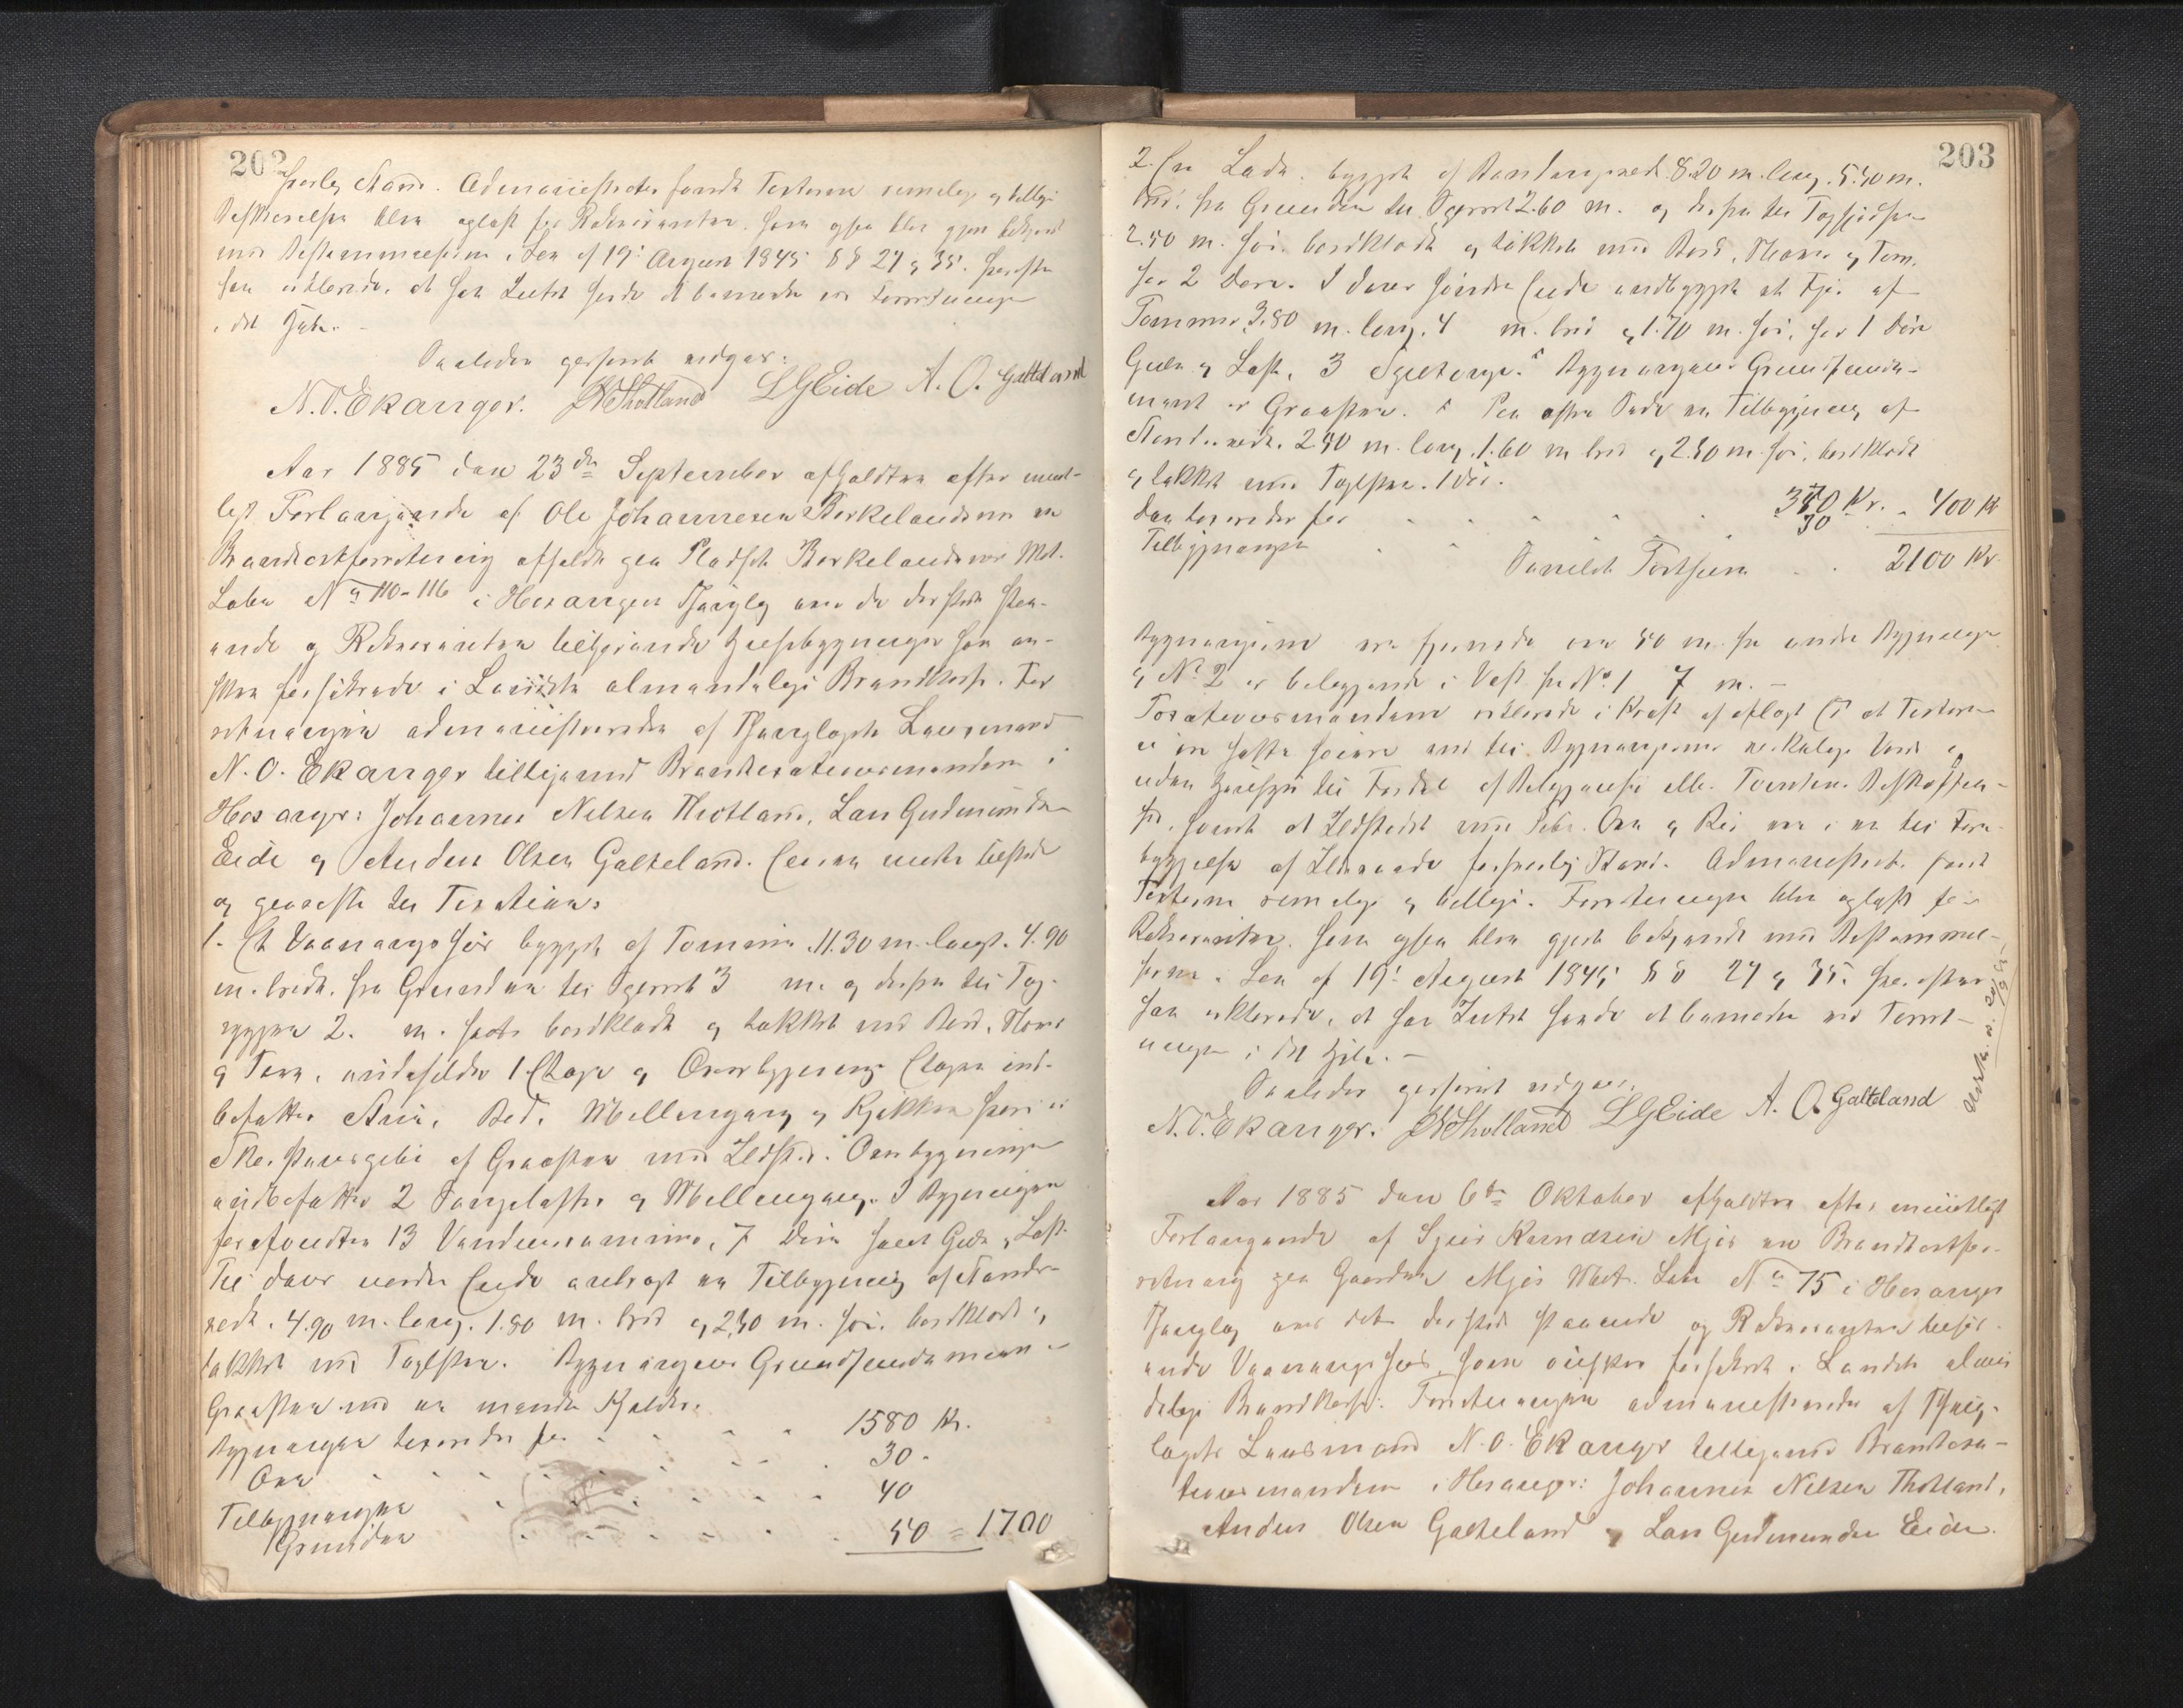 202
forlig Stand. Administrator fandt Taxterne rimelig og billige
Beskrivelsen blev oplæst for Rekvirenten, som ogsaa blev gjort bekjendt
med Bestemmelserne i Lov af 19de August 1845 §§ 27 og 35, hvorefter
han erklærede, at han Intet havde at bemærke ved Forretningen
i det Hele. -
Saaledes passeret vidner:
N. O. Ekanger. JNThotland LGEide A. O. Galteland
Aar 1885 den 23de September afholdtes efter mundt-
ligt Forlangende af Ole Johannesen Birkelandsvir en
Brandtaxtforretning afholdt paa Pladsen Birkelandsvir Mat.
Løbe No 110-116 i Hosanger Thinglag over de dersteds staa-
ende og Rekvirenten tilhørende Huusbygninger som øn-
skes forsikrede i Landets almindelige Brandkasse. For
retningen administreredes af Thinglagets Lensmand
N. O. Ekanger tilligemed Brandtaxationsmændene i
Hosanger: Johannes Nilsen Thotland, Lars Gudmundsen
Eide og Anders Olsen Galteland. Eieren mødte tilstede
og paaviste til Taxation:
1. Et Vaaningshus bygget af Tømmer, 11.30 m. langt. 4.90
m. bredt, fra Grunden til Gesimset 3 m. og derfra til Tag-
ryggen 2. m. høit bordklædt og tækket med Bord, Næver
og Torv, indeholder 1 Etage og Overbygning Etagen ind-
befatter Stue, Bod, Mellemgang og Kjøkken hvori er
Skorstenspibe af Graasten med Ildsted. Overbygningen
indbefatter 2 Sengelofter og Mellemgang. I Bygningen
forefindes 13 Vinduesrammer, 7 Døre samt Gulv og Loft.
Til dens nordre Ende anbragt en Tilbygning af Stander-
værk. 4.90 m. lang. 1.80 m. bred og 2.50 m. høi, bordklædt og
tækket med Taglsten. Bygningens Grundfundament er
Graasten med en mindre Kjelder.
Bygningen taxeredes for . . . . 1580 Kr.
Ovn . . . . . . 30 -
Tilbygningen . . . . . 40
Grunden . . . . . 50 = 1700
203
2. En Lade, bygget af Standerværk 8.20 m. lang, 5.50 m.
bred, fra Grunden til Gesimset 2.60 m. og derfra til Tagspidsen
2.50 m. høi, bordklædt og tækket med Bord, Næver og Torv,
har 2 Døre. I dens søndre Ende indbygget et Fjøs af
Tømmer 3.80 m. lang, 4 m. bred og 1.70 m. høi, har 1 Dør
Gulv og Loft, 3 Spiltouge. Bygningens Grundfunda-
ment er Graasten. Paa østre Side en Tilbygning af
Standerværk. 2.90 m. lang, 1.60 m bred og 2.50 m. høi, bordklædt
og tækket med Taglsten. 1 Dør.
Den taxeredes for . . . . . 370 Kr. - 400 Kr
Tilbygningen . . . 30
Samlet Taxtsum . . 2100 Kr.
Bygningerne ere fjernede over 50 m. fra andre Bygninger
og No 2 er beliggende i Vest fra No 1 7 m. -
Taxationsmændene erklærede i Kraft af aflagt Ed at Taxterne
ei ere satte høiere end til Bygningernes virkelige Værd og
uden Hensyn til Fordel af Beliggenhed eller Tomtens Beskaffen-
hed, samt at Ildstedet med Pibe, Ovn og Rør ere i en til Fore-
byggelse af Ildsvaade forsvarlig Stand. Administrator fandt
Taxterne rimelige og billige. Forretningen blev oplæst for
Rekvirenten, som ogsaa blev gjort bekjendt med Bestemmel-
serne i Lov af 19de August 1845 §§ 27 og 35, hvorefter
han erklærede, at han Intet havde at bemærke ved Forret-
ningen i det Hele. -
Saaledes passeret vidner:
N. O. Ekanger. JNThotland LGEide A. O. Galteland
Aar 1885 den 6te Oktober afholdtes efter mundtligt
Forlangende af Knudsen Mjøs en Brandtaxtfor-
retning paa Gaarden Mjøs Mat. Løbe No 75 i Hosanger
Thinglag over det dersteds staaende og Rekvirenten tilhør-
ende Vaaningshus, som ønskes forsikret i Landets almin-
delige Brandkasse. Forretningen administreredes af Thing-
lagets Lensmand N. O. Ekanger tilligemed Brandtaxa-
tionsmændene i Hosanger: Johannes Nilsen Thotland,
Anders Olsen Galteland og Lars Gudmundsen Eide.